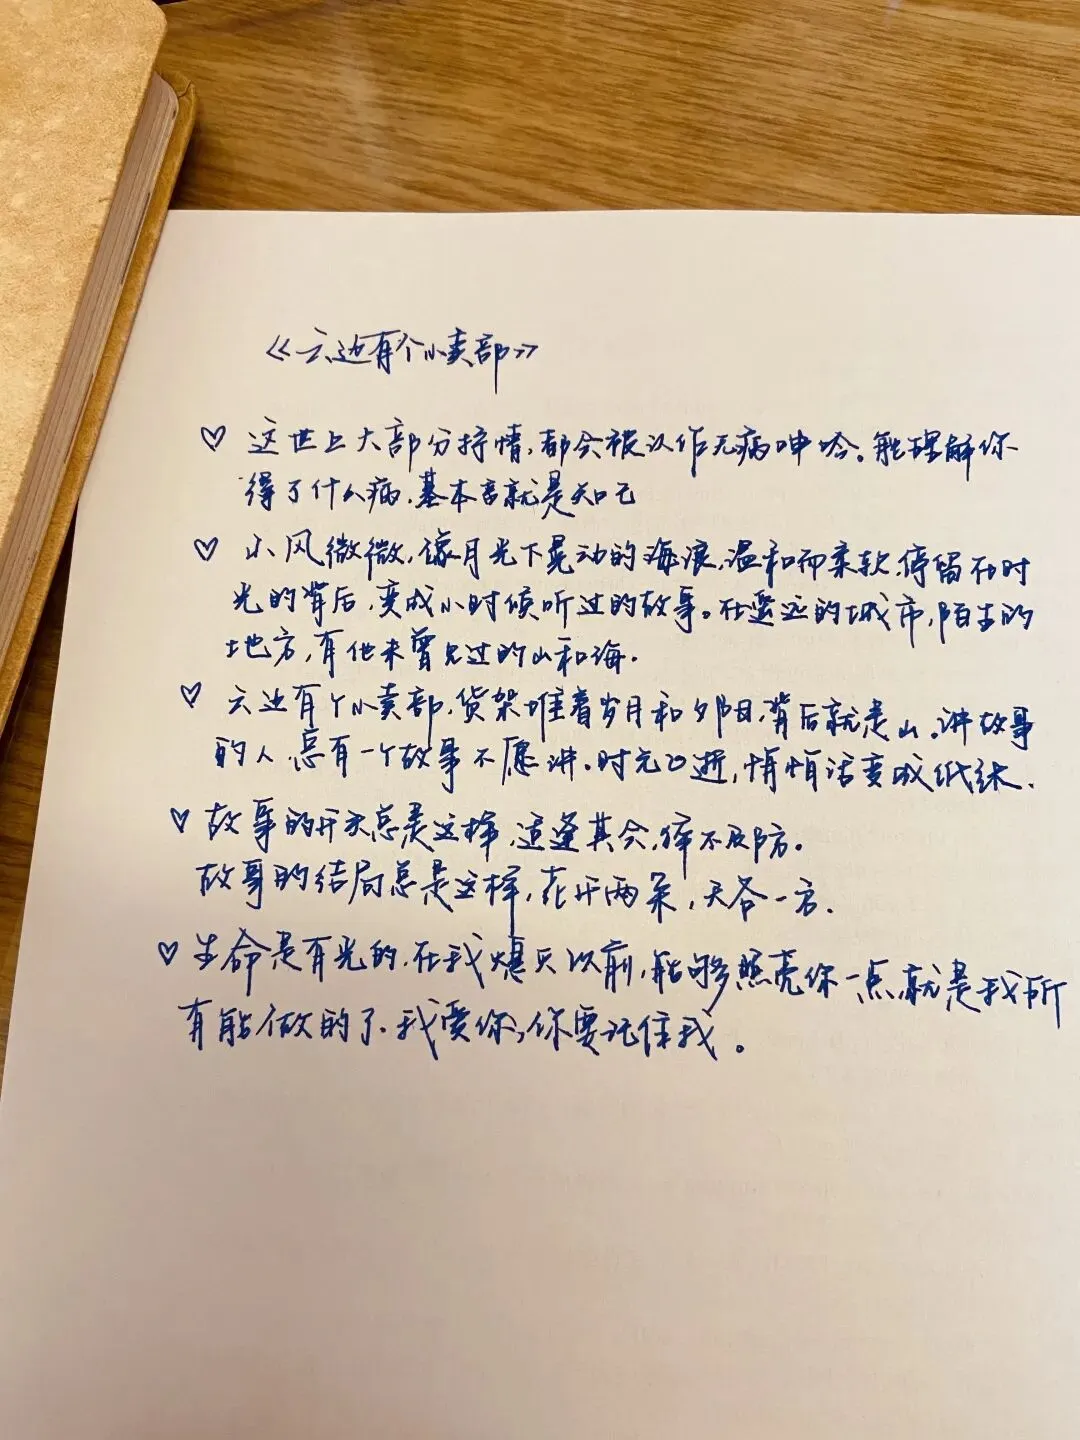 《云边有个小卖部》
♡ 这世上大部分抒情,都会被认作无病呻吟。能理解你
得了什么病,基本音就是知己
♡ 小风微微,像月光下晃动的海浪,温和而柔软,停留在时
光的背后,变成小时候听过的故事。在遥远的城市,陌生的
地方,有他未曾见过的山和海.
♡ 云边有个小卖部,货架堆着岁月和夕阳,背后就是山.讲故事
的人,总有一个故事不愿讲.时光飞逝,悄悄话变成纸张.
♡ 故事的开头总是这样,适逢其会,猝不及防。
故事的结局总是这样,花开两朵,天各一方.
♡ 生命是有光的.在我熄灭以前,能够照亮你一点,就是我所
有能做的了.我爱你,你要记住我。